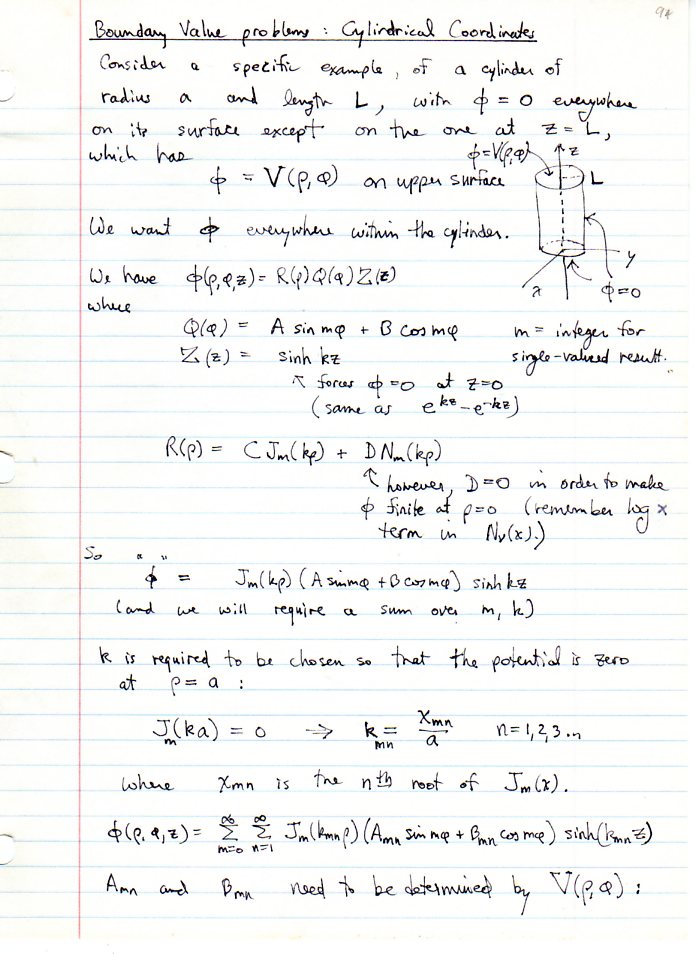 94
Boundary Value problems : Cylindrical Coordinates
Consider a specific example, of a cylinder of
radius a and length L, with ϕ = 0 everywhere
on its surface except on the one at z = L,
which has
ϕ = V(ρ,φ) on upper surface
ϕ=V(ρ,φ)
z
L
y
x
ϕ=0
We want ϕ everywhere within the cylinder.
We have ϕ(ρ,φ,z) = R(ρ)Q(φ)Z(z)
where
Q(φ) = A sin mφ + B cos mφ m = integer for
Z(z) = sinh kz single-valued result.
↖ forces ϕ=0 at z=0
(same as e^{kz} - e^{-kz})
R(ρ) = C J_m(kρ) + D N_m(kρ)
↖ however, D=0 in order to make
ϕ finite at ρ=0 (remember log x
term in N_ν(x).)
So " "
ϕ = J_m(kρ) (A sin mφ + B cos mφ) sinh kz
(and we will require a sum over m, k)
k is required to be chosen so that the potential is zero
at ρ = a :
J_m(ka) = 0 → k_{mn} = x_{mn}/a n=1,2,3...
where x_{mn} is the nth root of J_m(x).
ϕ(ρ,φ,z) = ∑_{m=0}^{∞} ∑_{n=1}^{∞} J_m(k_{mn}ρ) (A_{mn} sin mφ + B_{mn} cos mφ) sinh(k_{mn}z)
A_{mn} and B_{mn} need to be determined by V(ρ,φ) :